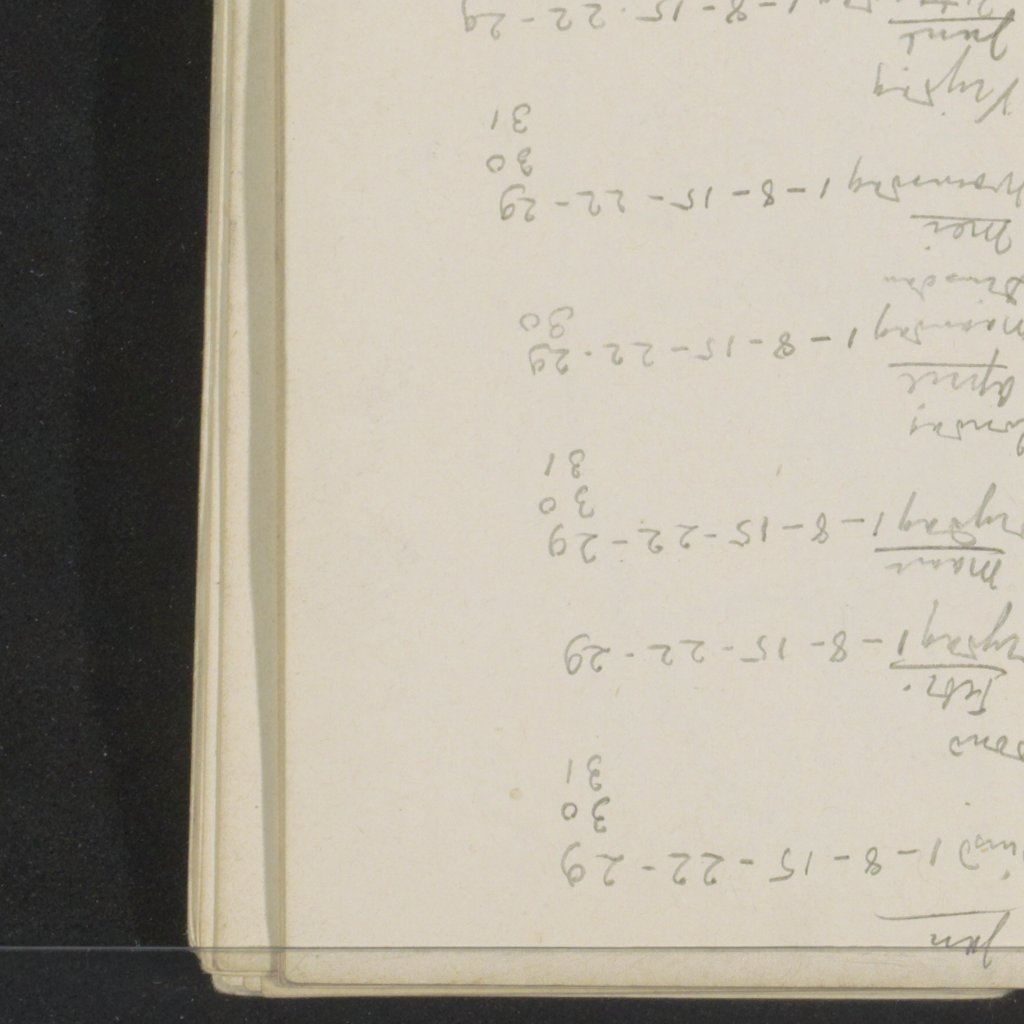 Jan
insd 1 - 8 - 15 - 22 - 29
30
31
ond
Febr.
rydag 1 - 8 - 15 - 22 - 29
Maart
rydag 1 - 8 - 15 - 22 - 29
30
31
Zondag
April
Maandag 1 - 8 - 15 - 22 - 29
30
Dinsdag
Mei
Woensdag 1 - 8 - 15 - 22 - 29
30
31
Vrydag
Juni
1 - 8 - 15 - 22 - 29